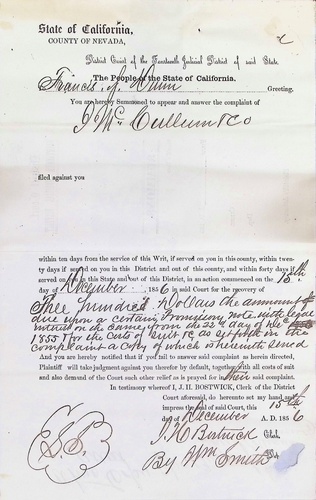 State of California,
COUNTY OF NEVADA,
District Court of the Fourteenth Judicial District of said State.
The People of the State of California.
Francis J. Dunn Greeting.
You are hereby Summoned to appear and answer the complaint of
J. Mc Cullum & Co
filed against you
within ten days from the service of this Writ, if served on you in this county, within twen-
ty days if served on you in this District and out of this county, and within forty days if
served on you in this State and out of this District, in an action commenced on the 15th
day of December 1856 in said Court for the recovery of
Three hundred Dollars the ammount
due upon a certain Promissory note with legal
interest on the same from the 25th day of Dec
1855 for the costs of suit &c as appears in the
complaint a copy of which is herewith served
And you are hereby notified that if you fail to answer said complaint as herein directed,
Plaintiff will take judgment against you thereby by default, together with all costs of
suit and also demand of the Court such other relief as is prayed for in their said complaint.
In testimony whereof I, J. H. BOSTWICK, Clerk of the District
Court aforesaid, do hereunto set my hand and
impress the seal of said Court, this 15th
day of December A. D. 1856
J H Bostwick Clerk,
By Wm Smith Dep
L. S.